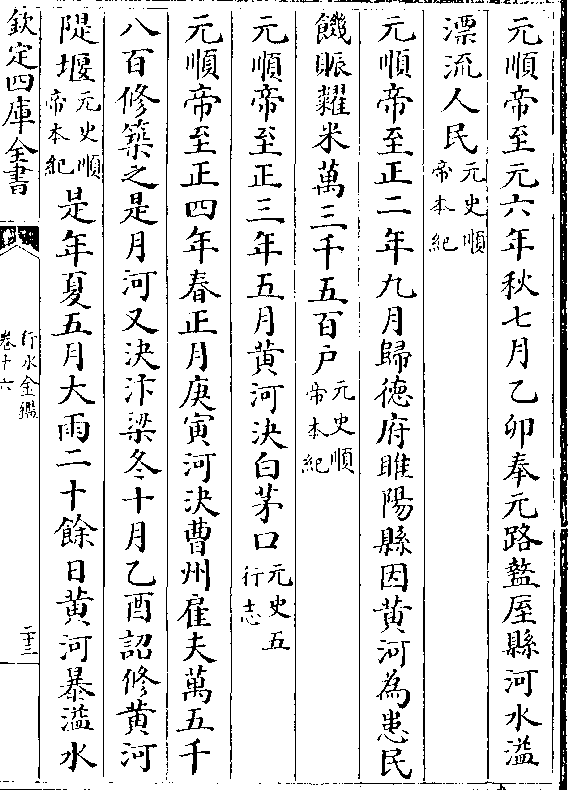 元順帝至元六年秋七月乙卯奉元路盩厔縣河水溢
漂流人民元史順帝本紀
元順帝至正二年九月歸德府睢陽縣因黄河為患民
饑賑糶米萬三千五百户元史順帝本紀
元順帝至正三年五月黄河決白茅口元史五行志
元順帝至正四年春正月庚寅河決曹州雇夫萬五千
八百修築之是月河又決汴梁冬十月乙酉詔修黄河
隄堰元史順帝本紀是年夏五月大雨二十餘日黄河暴溢水
欽定四庫全書
行水金鑑
卷十六
二十三